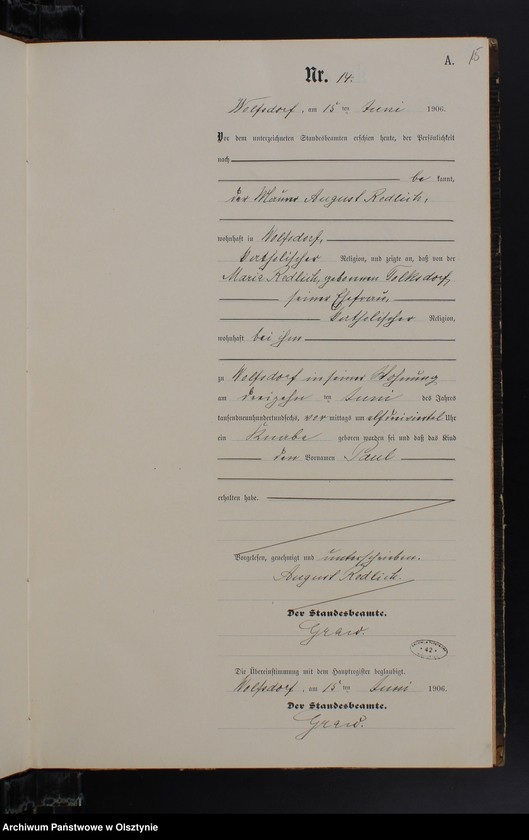 A. 15
Nr. 14.
Wolfsdorf, am 15 ten Juni 1906.
Vor dem unterzeichneten Standesbeamten erschien heute, der Persönlichkeit
nach
be kannt,
der Maurer August Redlich,
wohnhaft in Wolfsdorf,
katholischer Religion, und zeigte an, daß von der
Maria Redlich, geborenen Tolksdorf,
seiner Ehefrau,
katholischer Religion,
wohnhaft bei ihm
zu Wolfsdorf in seiner Wohnung
am dreizehn ten Juni des Jahres
tausendneunhundertundsechs, vor mittags um elfdreiviertel Uhr
ein Knabe geboren worden sei und daß das Kind
den Vornamen Paul
erhalten habe.
Vorgelesen, genehmigt und unterschrieben.
August Redlich.
Der Standesbeamte.
Graw.
42
Die Übereinstimmung mit dem Hauptregister beglaubigt.
Wolfsdorf, am 15 ten Juni 1906.
Der Standesbeamte.
Graw.
Archiwum Państwowe w Olsztynie